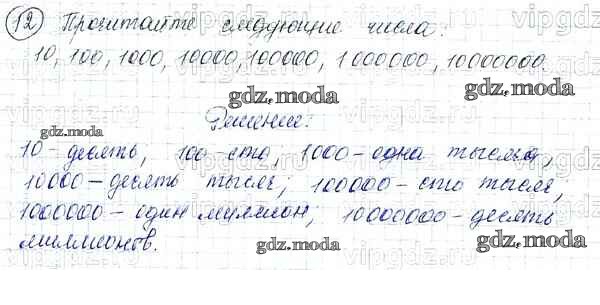 12 Прочитайте следующие числа:
10, 100, 1000, 10000, 100000, 1000000, 10000000.
Решение:
10 - десять, 100 - сто, 1000 - одна тысяча,
10000 - десять тысяч; 100000 - сто тысяч,
1000000 - один миллион; 10000000 - десять
миллионов.
gdz.moda
gdz.moda
gdz.moda
gdz.moda
gdz.moda
gdz.moda
vipgdz
vipgdz